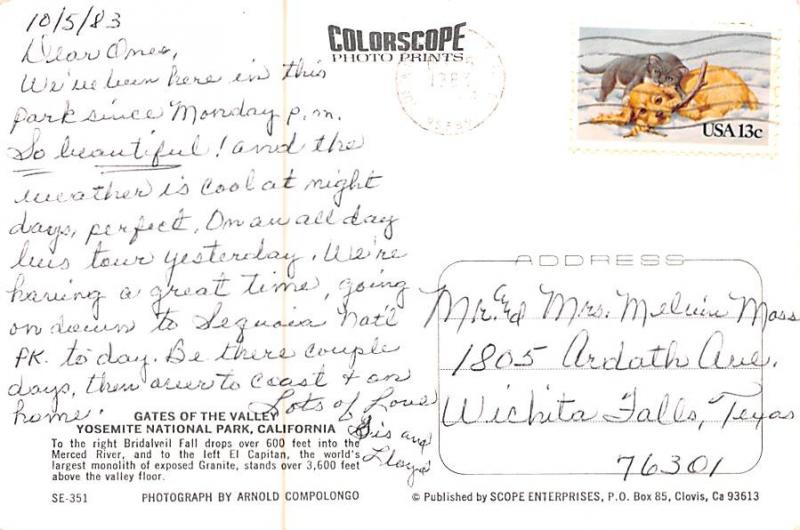 10/5/83
Dear Ones,
We've been here in this
park since Monday p.m.
So beautiful! and the
weather is cool at night
days, perfect. On an all day
bus tour yesterday. We're
having a great time, going
on down to Sequoia Nat'l
PK. today. Be there couple
days, then over to Coast & on
home.
Lots of Love
Sis and
Lloyd
COLORSCOPE
PHOTO PRINTS
1983
USA 13c
ADDRESS
Mr. and Mrs. Melvin Moss
1805 Ardath Ave.
Wichita Falls, Texas
76301
GATES OF THE VALLEY
YOSEMITE NATIONAL PARK, CALIFORNIA
To the right Bridalveil Fall drops over 600 feet into the
Merced River, and to the left El Capitan, the world's
largest monolith of exposed Granite, stands over 3,600 feet
above the valley floor.
SE-351 PHOTOGRAPH BY ARNOLD COMPOLONGO
© Published by SCOPE ENTERPRISES, P.O. Box 85, Clovis, Ca 93613